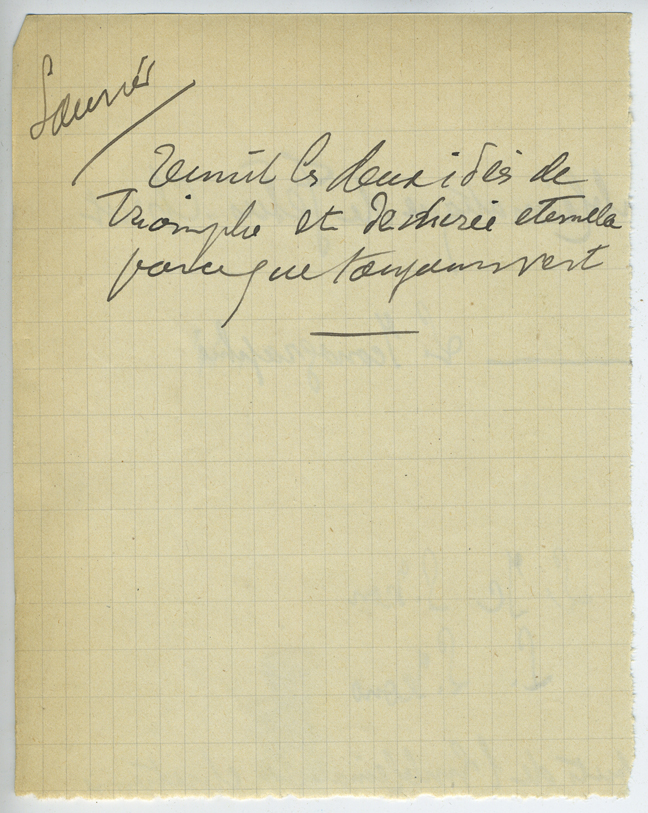 Laurier
réunit les deux idées de
triomphe et de durée eternelle
parce que toujours vert